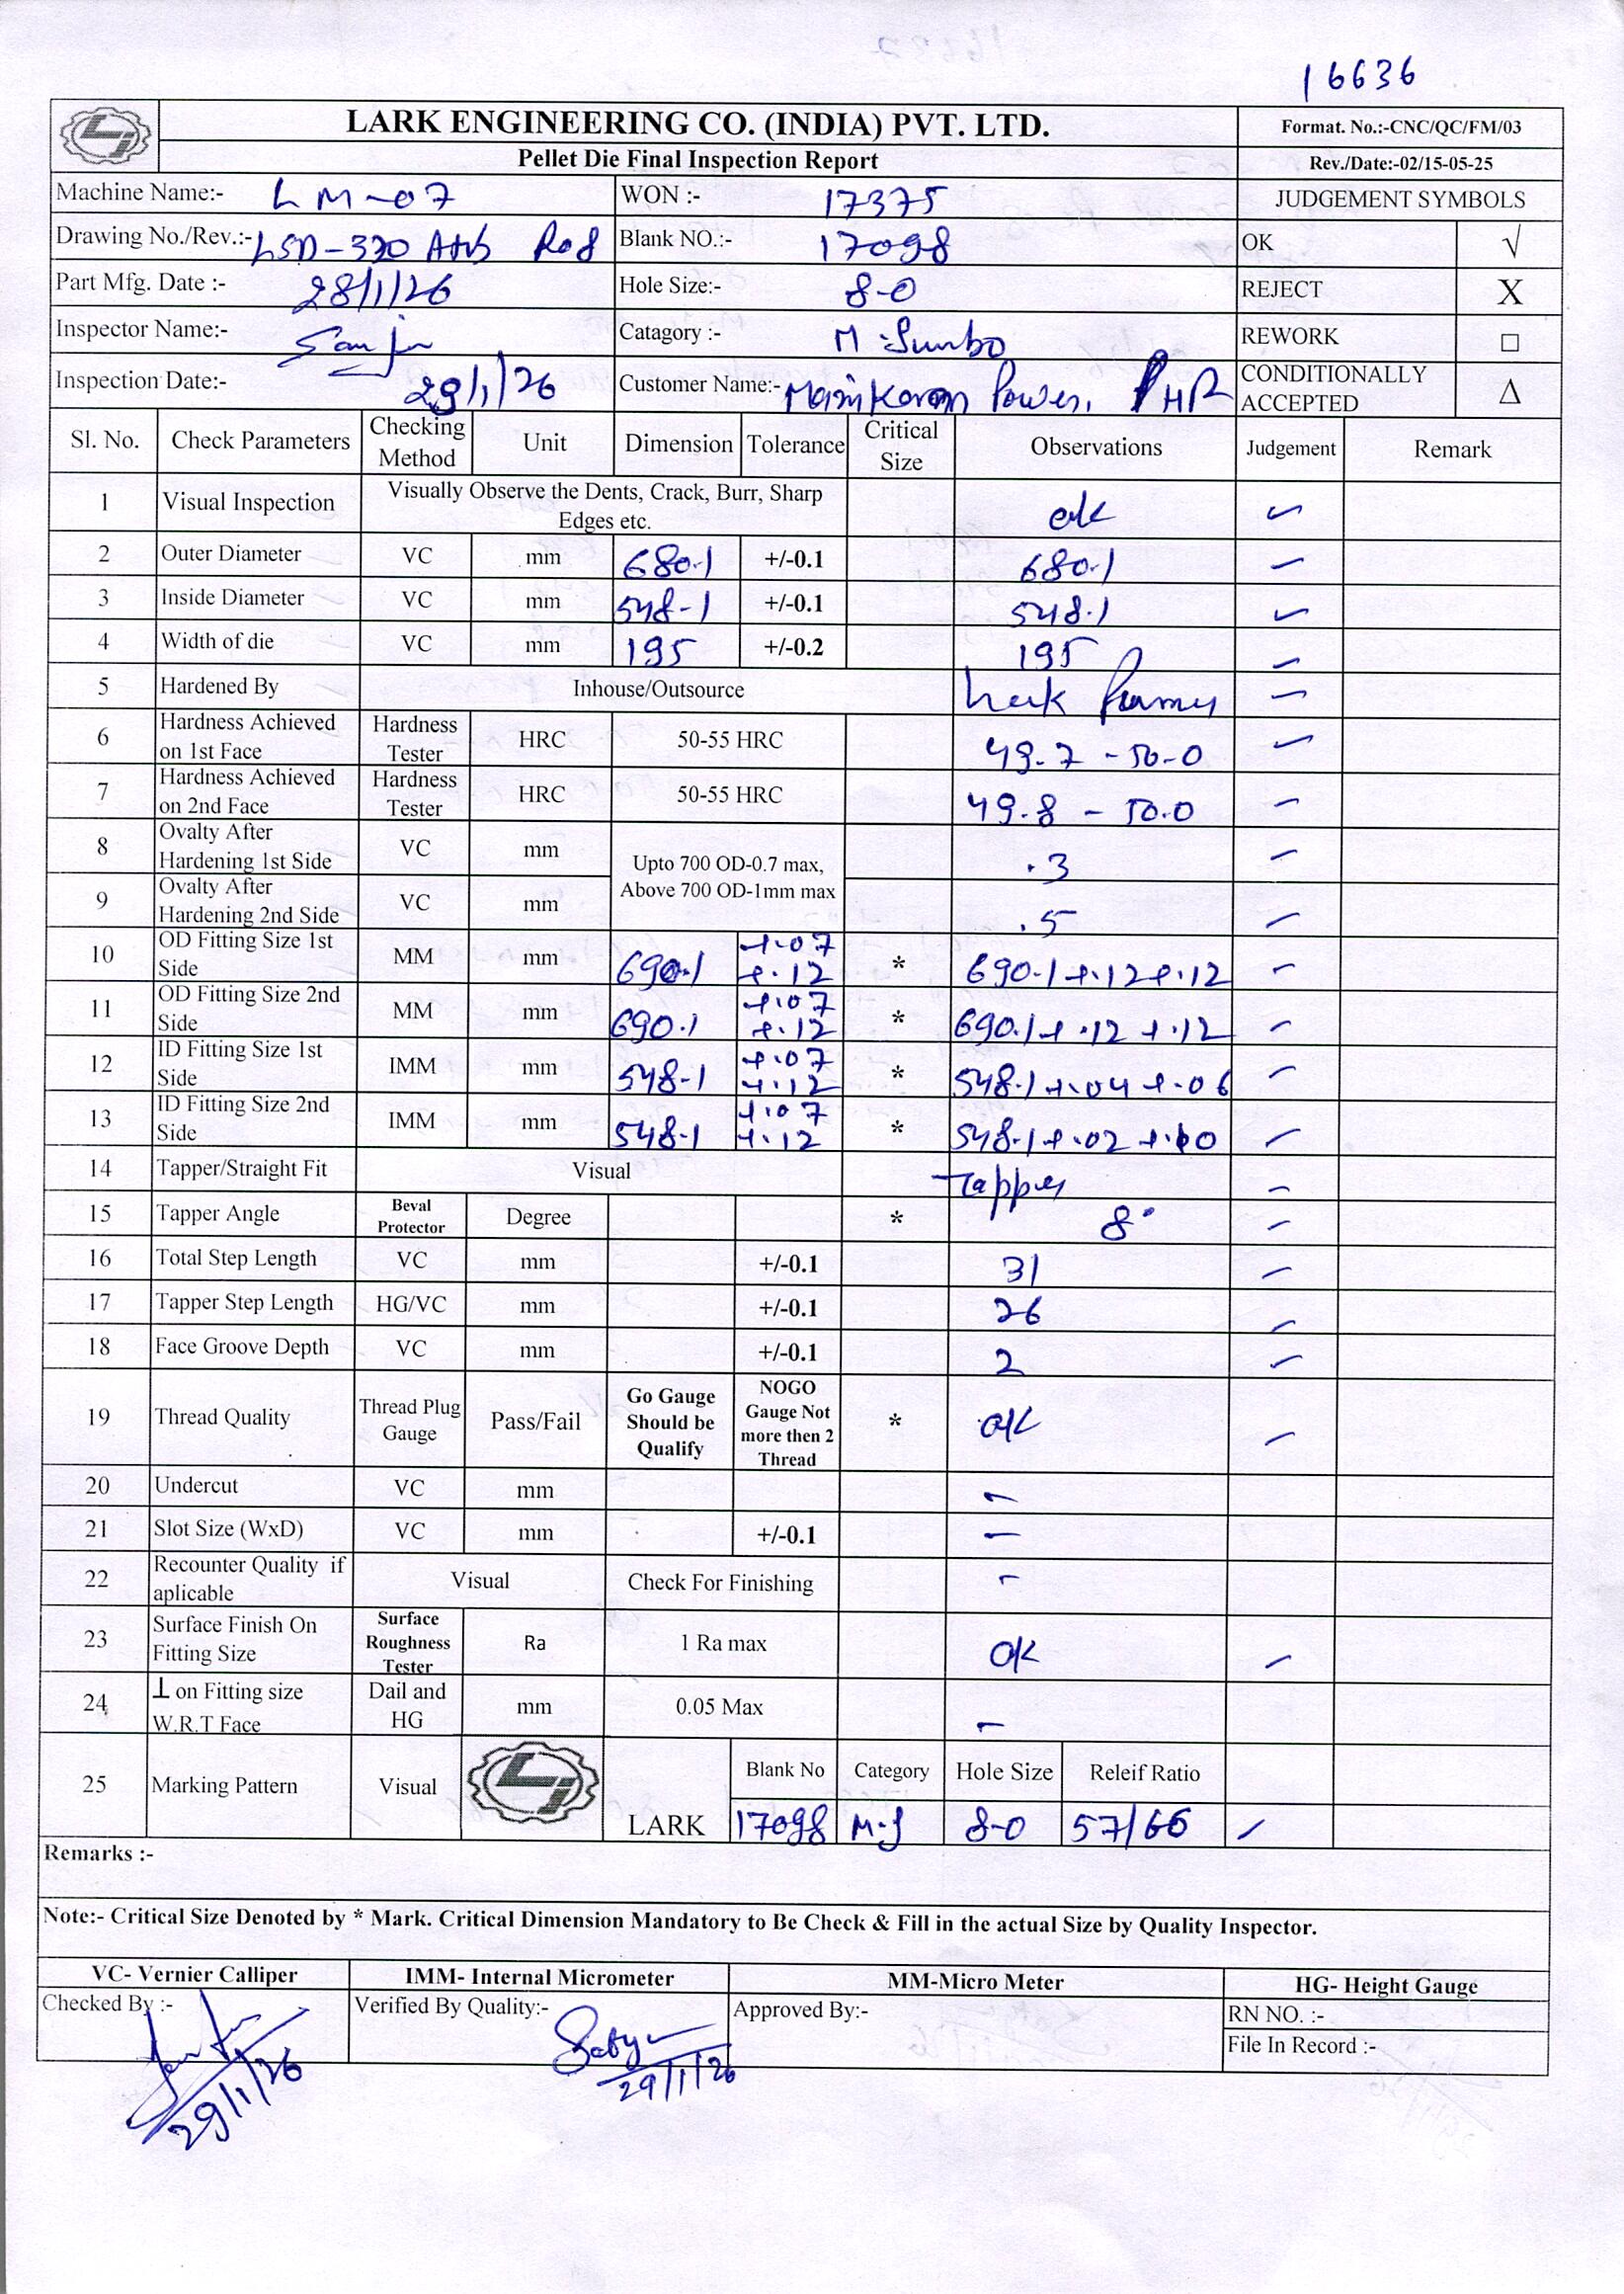 16636
LARK ENGINEERING CO. (INDIA) PVT. LTD.
Format. No.:-CNC/QC/FM/03
Pellet Die Final Inspection Report
Rev./Date:-02/15-05-25
Machine Name:- LM-07 WON :- 17375 JUDGEMENT SYMBOLS
Drawing No./Rev.:- LSD-320 Blank NO.:- 17098 OK √
Part Mfg. Date :- 28/1/26 Hole Size:- 8-0 REJECT X
Inspector Name:- Catagory :- REWORK □
Inspection Date:- 29/1/26 Customer Name:- Manikaran Power, CONDITIONALLY ACCEPTED Δ
Sl. No. Check Parameters Checking Method Unit Dimension Tolerance Critical Size Observations Judgement Remark
1 Visual Inspection Visually Observe the Dents, Crack, Burr, Sharp Edges etc. ok
2 Outer Diameter VC mm 680.1 +/-0.1 680.1
3 Inside Diameter VC mm 548-1 +/-0.1 548.1
4 Width of die VC mm 195 +/-0.2 195
5 Hardened By Inhouse/Outsource
6 Hardness Achieved on 1st Face Hardness Tester HRC 50-55 HRC 49.7 - 50-0
7 Hardness Achieved on 2nd Face Hardness Tester HRC 50-55 HRC 49.8 - 50.0
8 Ovalty After Hardening 1st Side VC mm Upto 700 OD-0.7 max, Above 700 OD-1mm max .3
9 Ovalty After Hardening 2nd Side VC mm .5
10 OD Fitting Size 1st Side MM mm 690.1 +.07 +.12 * 690.1+.12+.12
11 OD Fitting Size 2nd Side MM mm 690.1 +.07 +.12 * 690.1+.12 +.12
12 ID Fitting Size 1st Side IMM mm 548-1 +.07 +.12 * 548.1+.04 +.06
13 ID Fitting Size 2nd Side IMM mm 548-1 +.07 +.12 * 548.1+.02
14 Tapper/Straight Fit Visual Tapper
15 Tapper Angle Beval Protector Degree * 8°
16 Total Step Length VC mm +/-0.1 31
17 Tapper Step Length HG/VC mm +/-0.1 26
18 Face Groove Depth VC mm +/-0.1 2
19 Thread Quality Thread Plug Gauge Pass/Fail Go Gauge Should be Qualify NOGO Gauge Not more then 2 Thread * ok
20 Undercut VC mm -
21 Slot Size (WxD) VC mm +/-0.1 -
22 Recounter Quality if aplicable Visual Check For Finishing -
23 Surface Finish On Fitting Size Surface Roughness Tester Ra 1 Ra max ok
24 ⊥ on Fitting size W.R.T Face Dail and HG mm 0.05 Max -
25 Marking Pattern Visual LARK Blank No Category Hole Size Releif Ratio
17098 M.J 8-0 57/66
Remarks :-
Note:- Critical Size Denoted by * Mark. Critical Dimension Mandatory to Be Check & Fill in the actual Size by Quality Inspector.
VC- Vernier Calliper IMM- Internal Micrometer MM-Micro Meter HG- Height Gauge
Checked By :- Verified By Quality:- Approved By:- RN NO. :-
File In Record :-
29/1/26 29/1/26